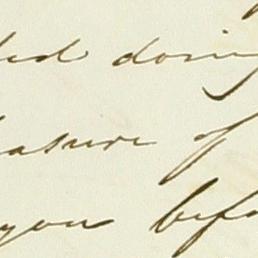 ed doing
easure of
you befo